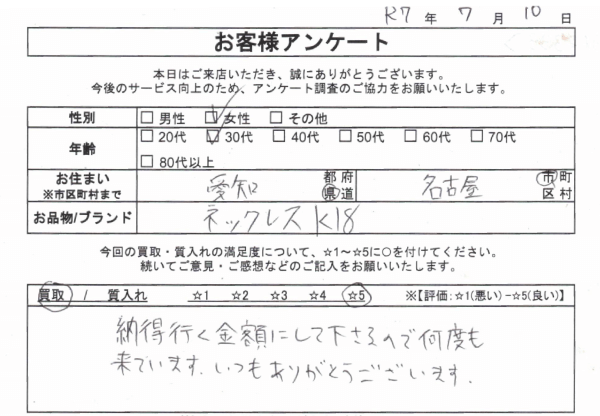 R7 年 7 月 10 日
お客様アンケート
本日はご来店いただき、誠にありがとうございます。
今後のサービス向上のため、アンケート調査のご協力をお願いいたします。
性別 □ 男性 ☑ 女性 □ その他
年齢 □ 20代 ☑ 30代 □ 40代 □ 50代 □ 60代 □ 70代
□ 80代以上
お住まい 愛知 都府県道 名古屋 市町区村
※市区町村まで
お品物/ブランド ネックレス K18
今回の買取・質入れの満足度について、☆1～☆5に○を付けてください。
続いてご意見・ご感想などのご記入をお願いいたします。
買取 / 質入れ ☆1 ☆2 ☆3 ☆4 ☆5 ※【評価:☆1(悪い)−☆5(良い)】
納得行く金額にして下さるので何度も
来ています。いつもありがとうございます。